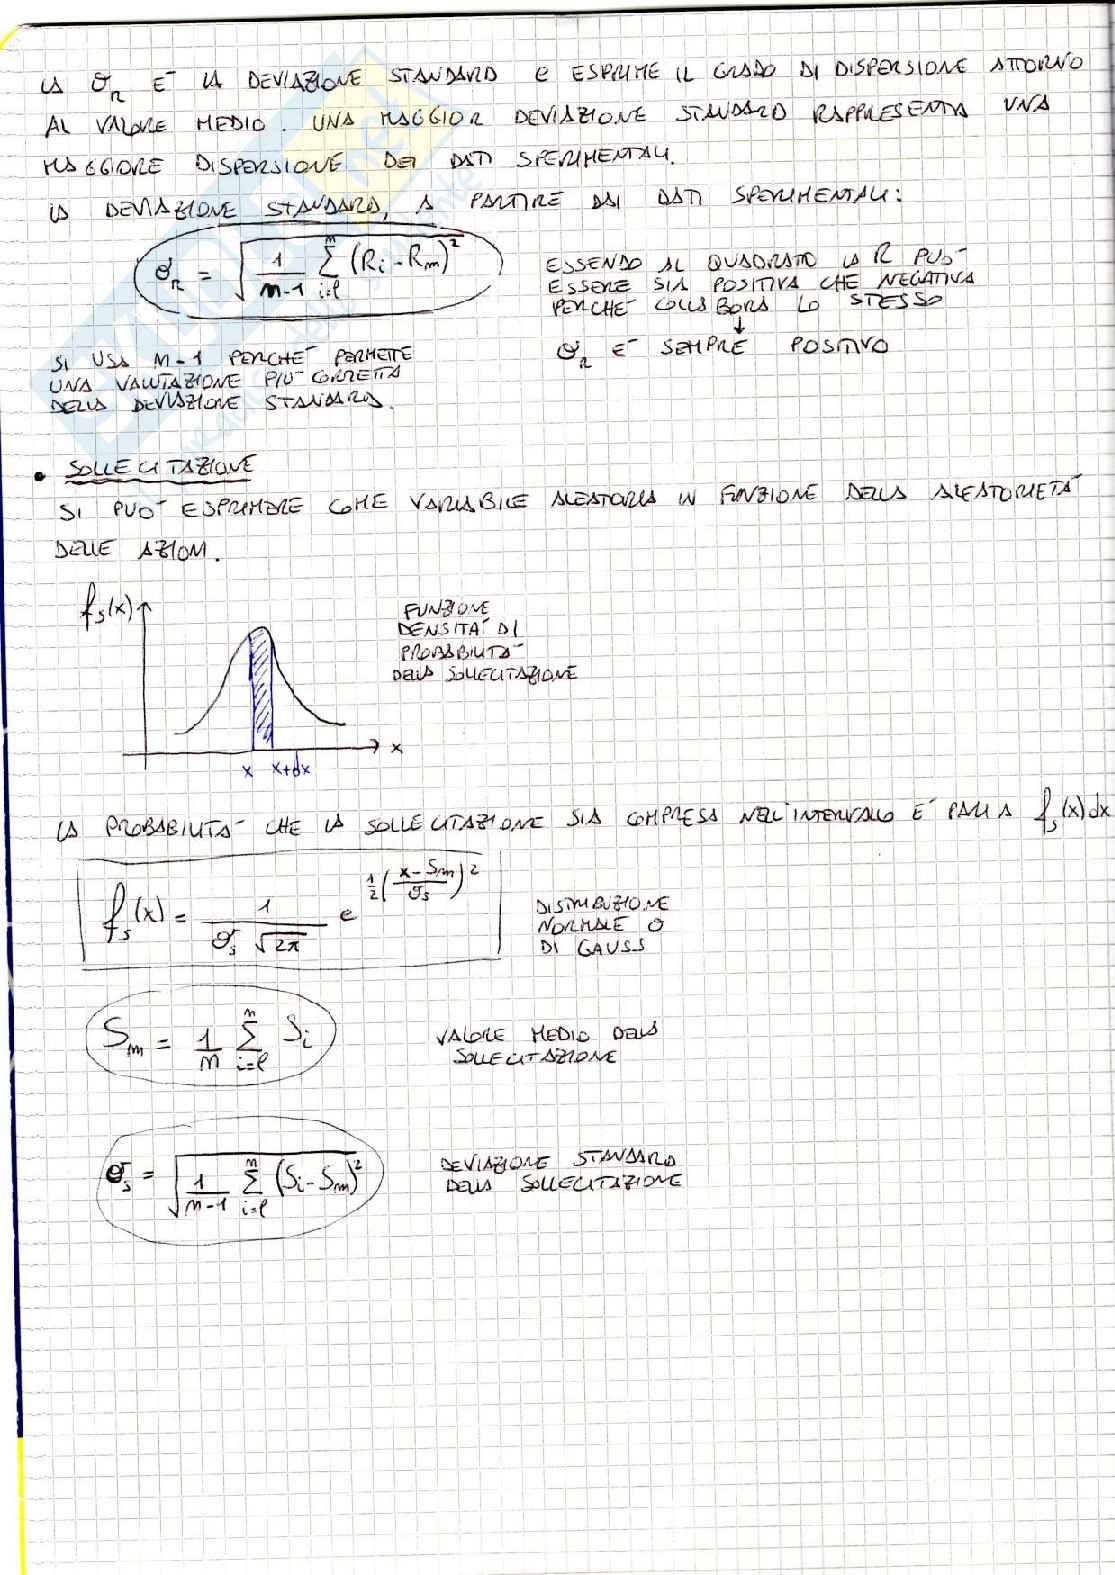 LA σR E' LA DEVIAZIONE STANDARD e ESPRIME IL GRADO DI DISPERSIONE ATTORNO
AL VALORE MEDIO. UNA MAGGIOR DEVIAZIONE STANDARD RAPPRESENTA UNA
MAGGIORE DISPERSIONE DEI DATI SPERIMENTALI.
LA DEVIAZIONE STANDARD, A PARTIRE DAI DATI SPERIMENTALI:
σR = √(1/(n-1) Σ_{i=1}^{n} (Ri - Rm)²)
ESSENDO AL QUADRATO LA R PUO'
ESSERE SIA POSITIVA CHE NEGATIVA
PERCHE' COLLABORA LO STESSO
↓
σR E' SEMPRE POSITIVO
SI USA n-1 PERCHE' PERMETTE
UNA VALUTAZIONE PIU' CORRETTA
DELLA DEVIAZIONE STANDARD.
• SOLLECITAZIONE
SI PUO' ESPRIMERE COME VARIABILE ALEATORIA IN FUNZIONE DELLA ALEATORIETA'
DELLE AZIONI.
fs(x)
FUNZIONE
DENSITA' DI
PROBABILITA'
DELLA SOLLECITAZIONE
x
x x+dx
LA PROBABILITA' CHE LA SOLLECITAZIONE SIA COMPRESA NELL'INTERVALLO E' PARI A fs(x)dx
fs(x) = 1/(σs √(2π)) e^(1/2 ((x-Sm)/σs)²)
DISTRIBUZIONE
NORMALE O
DI GAUSS
Sm = 1/n Σ_{i=1}^{n} Si
VALORE MEDIO DELLA
SOLLECITAZIONE
σs = √(1/(n-1) Σ_{i=1}^{n} (Si - Sm)²)
DEVIAZIONE STANDARD
DELLA SOLLECITAZIONE